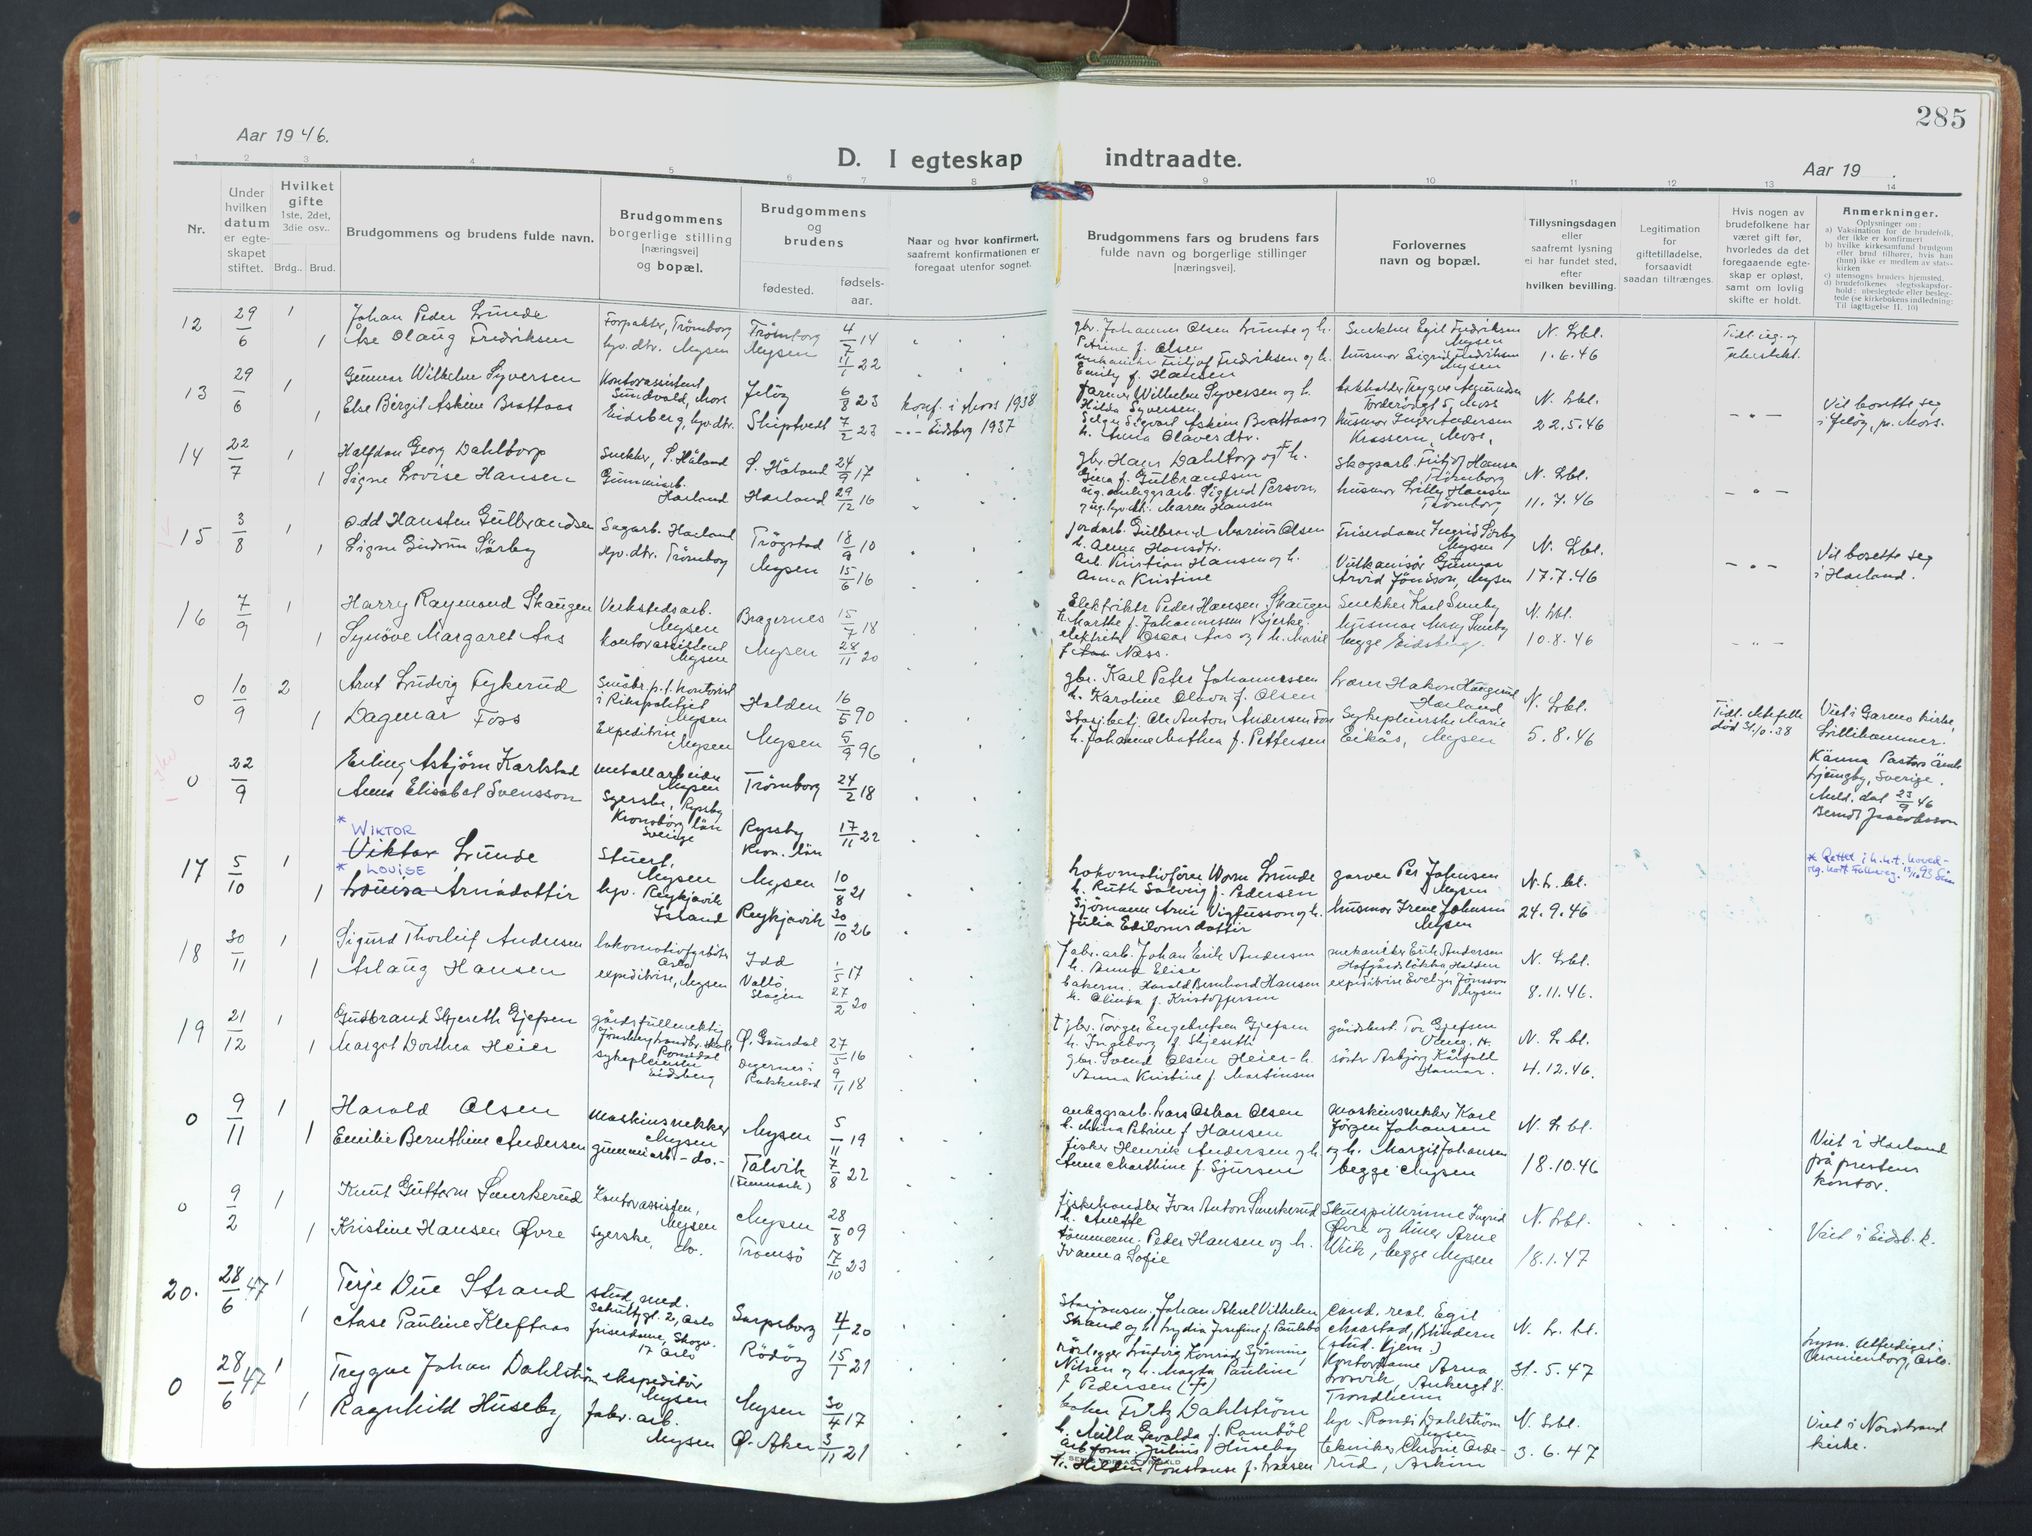 285
Aar 1946.
D. I egteskap indtraadte.
Aar 19 .
1 2 3 4 5 6 7 8 9 10 11 12 13 14
Nr.
Under hvilken datum er egte-skapet stiftet.
Hvilket gifte 1ste, 2det, 3die osv..
Brdg. Brud.
Brudgommens og brudens fulde navn.
Brudgommens borgerlige stilling [næringsvei] og bopæl.
Brudgommens og brudens
fødested. fødsels-aar.
Naar og hvor konfirmert, saafremt konfirmationen er foregaat utenfor sognet.
Brudgommens fars og brudens fars fulde navn og borgerlige stillinger [næringsvei].
Forlovernes navn og bopæl.
Tillysningsdagen eller saafremt lysning ei har fundet sted, efter hvilken bevilling.
Legitimation for giftetilladelse, forsaavidt saadan tiltrænges.
Hvis nogen av brudefolkene har været gift før, hvorledes da det foregaaende egte-skap er opløst, samt om lovlig skifte er holdt.
Anmerkninger.
Oplysninger om:
a) Vaksination for de brudefolk, der ikke er konfirmert
b) hvilke kirkesamfund brudgom eller brud tilhører, hvis han (hun) ikke er medlem av stats-kirken
c) utensogns bruders hjemsted.
d) brudefolkenes slegtsskapsfor-hold: ubeslegtede eller besleg-tede (se kirkebokens indledning: Til iagttagelse II. 10)
12 29/6 1 Johan Peder Lunde Forpakter, Trømborg Trømborg 4/7 14
1 Åse Olaug Fredriksen hjv. dtr. Mysen Mysen 11/1 22
gbr. Johannes Olsen Lunde og h. Petrine f. Olsen
Fritjof Fredriksen og h. Emily f. Hansen
Snekker Egil Fredriksen Mysen
husmor Sigrid Fredriksen Mysen
N. Lbl. 1.6.46
Tidl. ug. og ubeslekt.
13 29/6 1 Gunnar Wilhelm Syversen Kontorassistent Sundvold, Moss Jeløy 6/8 23 konf. i Moss 1938
1 Else Birgit Askim Brattaas Eidsberg, hjv. dtr. Skiptvedt 7/2 23 -"- Eidsberg 1937
Wilhelm Syversen og h. Hilda Syversen
Sigvart Askim Brattaas og h. Anna Olaversdtr.
Trygve Amundsen Moss
husmor Inger Andersen Moss,
N. Lbl. 22.5.46
- " -
Vil bosette seg i Jeløy, pr. Moss.
14 22/7 1 Halfdan Georg Dahltorp Snekker, S. Håland S. Håland 24/9 17
1 Signe Lovise Hansen Gummiarb. Hærland Hærland 29/12 16
gbr. Hans Dahltorp og h. Gina f. Gulbrandsen
ug. anleggsarb. Sigfred Person, og ug. hjv. dtr. Maren Hansen
Skogsarb. Fritjof Hansen Trømborg
husmor Lilly Hansen Trømborg
N. Lbl. 11.7.46
- " -
15 3/8 1 Odd Hansten Gulbrandsen Sagarb. Hærland Trøgstad 18/9 10
1 Signe Gudrun Sørby hjv. dtr. Trømborg Mysen 15/6 16
jordarb. Gulbrand Marius Olsen h. Anna Hansdtr.
Arb. Kristian Hansen og h. Anna Kristine
Friserdame Ingrid Sørby Mysen
Vulkanisør Gunnar Arvid Jønsson, Mysen
N. Lbl. 17.7.46
- " -
Vil bosette seg i Hærland.
16 7/9 1 Harry Raymond Skaugen Verkstedsarb. Mysen Bragernes 15/7 18
1 Synöve Margaret Aas Kontorassistent Mysen Mysen 28/11 20
Elektriker Peder Hansen Skaugen h. Marthe f. Johannessen Bjerke.
elektriker Oscar Aas og h. Marie f. Aas Næss.
Snekker Karl Smeby
husmor Mary Smeby begge Eidsberg.
N. Lbl. 10.8.46
- " -
0 10/9 2 Arnt Ludvig Fykerud Småbr. p.t. kontorist i Rikspolitiet Mysen Halden 16/5 90
1 Dagmar Foss Expeditrise, Mysen Mysen 5/9 96
gbr. Karl Peter Johannessen h. Karoline Olava f. Olsen
Stasjbetj. Ole Anton Andersen Foss h. Johanne Mathea f. Pettersen
Lærer Håkon Haugerud Hærland
Sykepleierske Marie Eikås, Mysen
N. Lbl. 5.8.46
Tidl. ektefelle død 31.10.38
Viet i Garmo kirke, Lillehammer.
0 22/9 Erling Asbjørn Karlstad Metallarbeider Mysen Trømborg 24/2 18
Anna Elisabet Svensson Syerske, Ryssby Kronoborg län Sverige Ryssby Kron. län 17/11 22
Kånna Pastors Ämb. Ljungby, Sverige. Meld. dat 23/9 46 Berndt Jacobsson
* WIKTOR
17 5/10 1 Viktor Lunde Stuert, Mysen Mysen 10/8 21
* LOUISE
1 Louisa Arnadottir hjv. Reykjavik Island Reykjavik 30/10 26
Lokomotivfører Worm Lunde h. Ruth Solveig f. Pedersen
Sjømann Arni Vigfusson og h. Julia
garver Per Johnsen Mysen
husmor Irene Johnsen Mysen
N. L. bl. 24.9.46
* Rettet i h.h.t. hoved-
18 30/11 1 Sigurd Thorleif Andersen lokomotivfyrbøter Oslo Idd 1/5 17
1 Aslaug Hansen expeditrise, Mysen Vallø, Slagen 27/2 20
Fabr. arb. Johan Erik Andersen h. Anna Elise
bakerm. Harald Bernhard Hansen h. Olinka f. Kristoffersen
mekaniker Erik Andersen Halden
expeditrise Evelyn Jønsson Mysen
N. Lbl. 8.11.46.
19 21/12 1 Gudbrand Skjeseth Gjefsen gårdsfullmektig Jønsberg landbr. skole Romedal Ø. Gausdal 27/5 16
1 Margot Dorthea Heier sykepleierske Eidsberg Degernes i Rakkestad 9/11 18
† gbr. Torger Engebretsen Gjefsen h. Ingeborg f. Skjeseth
gbr. Svend Olsen Heier - h. Anna Kristine f. Martinsen
gårdbest. Tor Gjefsen Vang, H.
søster Asbjørg Kålfall Hamar.
N. L. bl. 4.12.46.
0 9/11 1 Harald Olsen Maskinsnekker Mysen Mysen 5/11 19
1 Emilie Bernthine Andersen gummiarb -do.- Talvik (Finnmark) 7/8 22
anleggsarb. Lars Oskar Olsen h. Anna Petrine f. Hansen
fisker Henrik Andersen og h. Anna Marthine f. Sjursen
Maskinsnekker Karl Jørgen Johansen og h. Margit Johansen begge Mysen
N. L bl. 18.10.46
Viet i Hærland på prestens kontor.
0 9/2 1 Knut Guttorm Smerkerud Kontorassistent, Mysen Mysen 28/8 09
1 Kristine Hansen Øvre Syerske, do. Tromsö 17/10 23
fiskehandler Ivar Anton Smerkerud h. Anette
tømmerm. Peder Hansen og h. Ivanna Sofie
Skuespillerinne Ingrid Øvre og Arne Wiik, begge Mysen
N. Lbl. 18.1.47
Viet i Eidsb. k.
20. 28/6 47 1 Terje Due Strand stud. med. Schultzgt. 2, Oslo Sarpsborg 4/1 20
1 Aase Pauline Kleftaas friserdame, Skogv. 17 Oslo Rödöy 15/1 21
Stasjonsm. Johan Aksel Vilhelm Strand og h. Lydia Josefine f. Paulsbo
rörlegger Ludvig Konrad Sjønning Nilsen og h. Magda Pauline f. Pedersen
cand. real. Egil Maastad, Blindern (stud. hjem.)
Kontordame Arna Losvik, Ankergt 8. Trondheim
N. L. bl. 31.5.47
Lysn. utferdiget i Uranienborg, Oslo.
0 28/6 47 1 Trygve Johan Dahlström ekspeditör Mysen Mysen 30/4 17
1 Ragnhild Huseby fabr. arb. Mysen Ø. Aker 3/11 21
baker Fritz Dahlström h. Milla Gevalda f. Ramböl
Arb. form. Julius Huseby h. Heldin Konstanse f. Larsen
hjv. Randi Dahlström Mysen
tekniker Chrone Orderud, Askim
N. Lbl. 3.6.47
Viet i Nordstrand kirke.